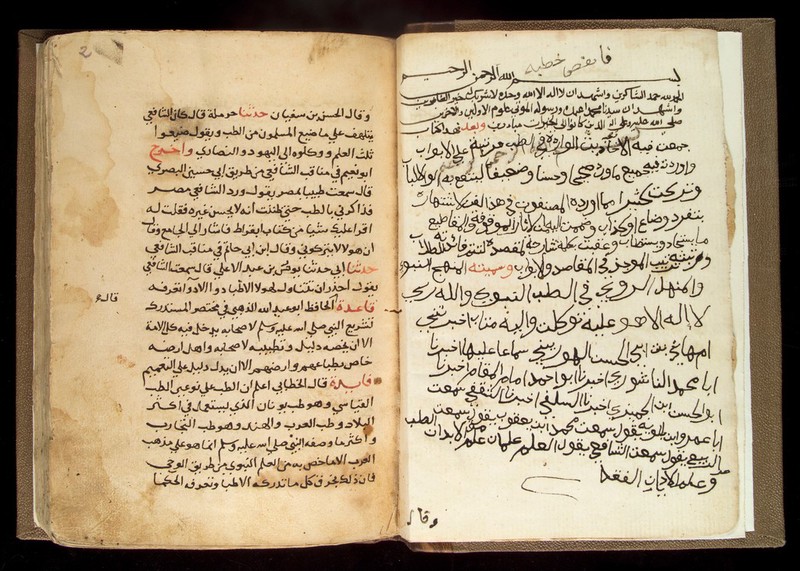 خطبه
بسم الله الرحمن الرحيم
الحمد لله حمد الشاكرين واشهد ان لا اله الا الله وحده لا شريك له
واشهد ان سيدنا محمد عبده ورسوله الموتى علوم الاولين والاخرين
صلى الله عليه وعلى اله الذين كانوا الى الخيرات مبادرين وبعد فهذا كتاب
جمعت فيه الاحاديث الواردة في الطب مرتبة على الابواب
واوردت فيه جميع ما ورد صحيحا وحسنا وضعيفا لينتفع به اولو الالباب
وتركت كثيرا مما اورده المصنفون في هذا الفن لاشتهاره
بتفرد وضاع او كذاب وضممت اليه من الاثار الموقوفة والمقاطيع
ما يستجاد ويستطاب وعقبت بكلمة شارحة للمقصد لتتم فائدته للطلاب
ورتبته ترتيب الموجز في المقاصد والابواب وسميته المنهج السوي
والمنهل الروي في الطب النبوي والله ربي
لا اله الا هو عليه توكلت واليه متاب اخبرتني
ام هانئ بنت ابي الحسن الهوريني سماعا عليها اخبرنا
ابا محمد النشاوري اخبرنا ابو احمد امام المقام اخبرنا
ابو الحسن ابن الحميزي اخبرنا السلفي اخبرنا الثقفي سمعت
ابا عمرو ابن بالويه يقول سمعت محمد ابن يعقوب يقول سمعت
الربيع يقول سمعت الشافعي يقول العلم علمان علم الابدان الطب
وعلم الاديان الفقه
وقال
2
وقال الحسن بن سفيان حدثنا حرملة قال كان الشافعي
يتلهف على ما ضيع المسلمون من الطب ويقول ضيعوا
ثلث العلم ووكلوه الى اليهود والنصارى واخرج
ابو نعيم في مناقب الشافعي من طريق ابي حسين البصري
قال سمعت طبيبا بمصر يقول ورد الشافعي مصر
فذاكرني بالطب حتى ظننت انه لا يحسن غيره فقلت له
اقرا عليك شيئا من كتاب بقراط فاشار الى الجامع وقال
ان هولاء لا يتركوني وقال ابن ابي حاتم في مناقب الشافعي
حدثنا ابي حدثنا يونس بن عبد الاعلى قال سمعت الشافعي
يقول احذر ان تتناول لهولاء الاطبا دواء الا دوا تعرفه
قاعدة قال الحافظ ابو عبد الله الذهبي في مختصر المستدرك
لتشريع النبي صلى الله عليه وسلم لاصحابه يدخل فيه كل الامة
الا ان يخصه دليل وتطبيبه لاصحابه واهل ارضه
خاص بطباعهم وارضهم الا ان يدل دليل على التعميم
فايدة قال الخطابي اعلم ان الطب على نوعين الطب
القياسي وهو طب يونان الذي يستعمل في اكثر
البلاد وطب العرب والهند وهو طب التجارب
واكثر ما وصفه النبي صلى الله عليه وسلم انما هو على مذهب
العرب الا ما خص به من العلم النبوي من طريق الوحي
فان ذلك يخرق كل ما تدركه الاطبا وتعرفه الحكما